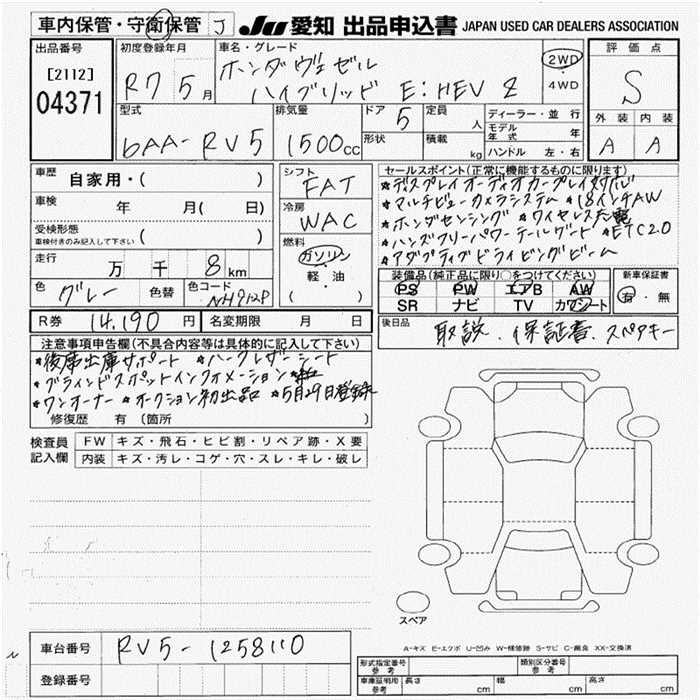 車内保管・守衛保管 J JU 愛知 出品申込書 JAPAN USED CAR DEALERS ASSOCIATION
出品番号 [2112] 04371
初度登録年月 R7 5月
車名・グレード ホンダ ヴェゼル
ハイブリッド E:HEV Z
2WD・4WD
評価点 S
外装 内装
A A
型式 6AA-RV5
排気量 1500cc
ドア 5
形状
定員 人
積載 kg
ディーラー・並行
モデル年式 年
ハンドル 左・右
車歴 自家用・( )
車検 年 月( 日)
受検形態 車検付きのみ記入して下さい ( )
走行 万 千 8 km
色 グレー 色替 色コード NH912P
シフト FAT
冷房 WAC
燃料 ガソリン・軽・油 ( )
セールスポイント(正常に機能するものに限ります)
*ディスプレイオーディオカープレイ対応
*マルチビューカメラシステム *18インチAW
*ホンダセンシング *ワイヤレス充電
*ハンズフリーパワーテールゲート *ETC2.0
*アダプティブドライビングビーム
装備品(純正品に限り○をつけてください)
PS PW エアB AW
SR ナビ TV カワシート
新車保証書 有・無
R券 14,190 円 名変期限 月 日
後日品 取説、保証書、スペアキー
注意事項申告欄(不具合内容等は具体的に記入して下さい)
*後席出庫サポート *ハーフレザーシート
*ブラインドスポットインフォメーション
*ワンオーナー *オークション初出品 *5月29日登録
修復歴 有(箇所 )
検査員記入欄
FW キズ・飛石・ヒビ割・リペア跡・X要
内装 キズ・汚レ・コゲ・穴・スレ・キレ・破レ
スペア
A-キズ E-エクボ U-凹み W-補修跡 S-サビ C-腐食 XX-交換済
車台番号 RV5-1258110
登録番号
形式指定番号 参考 類別区分番号 参考
車庫証明用 参考 長さ cm 幅 cm 高さ cm